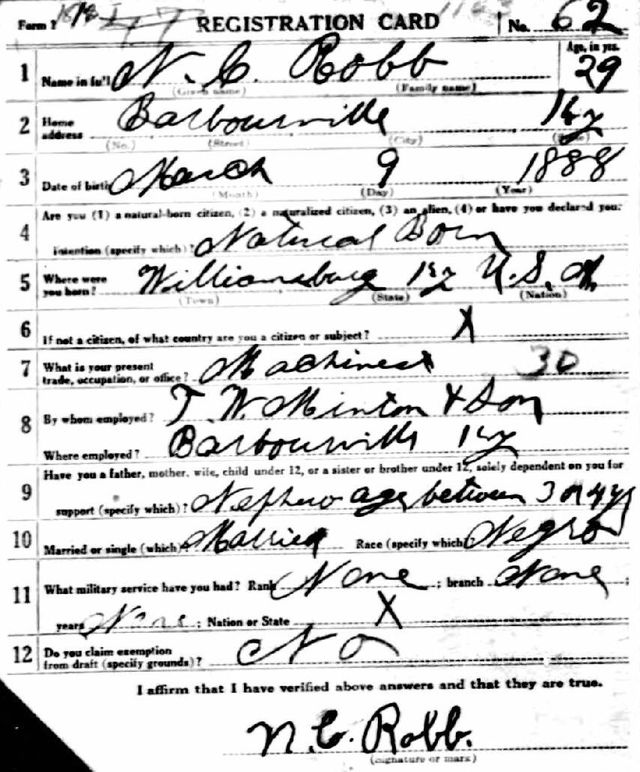 Form 1 REGISTRATION CARD No. 62
1 Name in full N. C. Robb Age, in yrs. 29
(Given name) (Family name)
2 Home address Barbourville Ky
(No.) (Street) (City) (State)
3 Date of birth March 9 1888
(Month) (Day) (Year)
4 Are you (1) a natural-born citizen, (2) a naturalized citizen, (3) an alien, (4) or have you declared your
intention (specify which)? Natural Born
5 Where were you born? Williamsburg Ky U.S.A.
(Town) (State) (Nation)
6 If not a citizen, of what country are you a citizen or subject? X
7 What is your present
trade, occupation, or office? Machinest 30
8 By whom employed? T. W. Minton & Son
Where employed? Barbourville Ky
9 Have you a father, mother, wife, child under 12, or a sister or brother under 12, solely dependent on you for
support (specify which)? Nephew age between 3 or 4 yrs
10 Married or single (which) Married Race (specify which) Negro
11 What military service have you had? Rank None ; branch None ;
years None ; Nation or State X
12 Do you claim exemption
from draft (specify grounds)? No
I affirm that I have verified above answers and that they are true.
N. C. Robb.
(signature or mark)